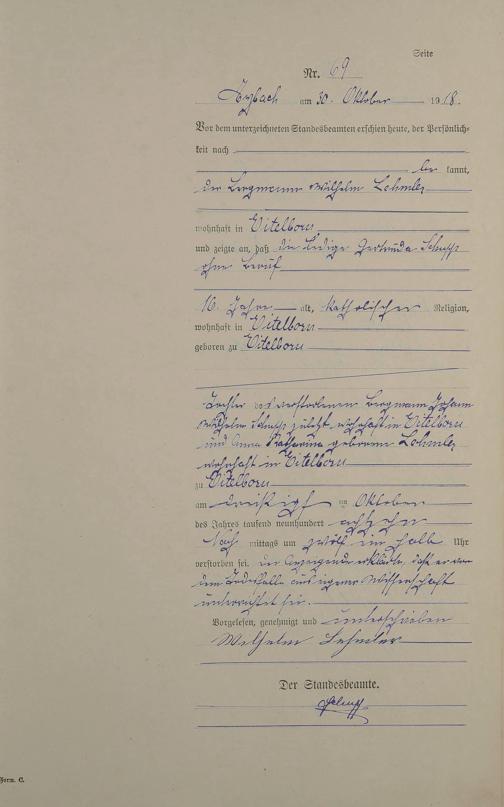 Seite
Nr. 69
am 30. Oktober 1918.
Vor dem unterzeichneten Standesbeamten erschien heute, der Persönlich-
keit nach
be kannt,
der Bergmann Wilhelm Lehmler
wohnhaft in Eitelborn
und zeigte an, daß die ledige Gertruda Schupp
ohne Beruf
16 Jahre alt, katholischer Religion,
wohnhaft in Eitelborn
geboren zu Eitelborn
Tochter des verstorbenen Bergmann Johann
Wilhelm Schupp zuletzt wohnhaft in Eitelborn
und Anna Katharina geborene Lehmler
wohnhaft in Eitelborn
zu Eitelborn
am dreißigsten Oktober
des Jahres tausend neunhundert achtzehn
Nach mittags um zwölf ein halb Uhr
verstorben sei. Der Anzeigende erklärte, daß er von
dem Sterbefalle aus eigener Wissenschaft
unterrichtet sei.
Vorgelesen, genehmigt und unterschrieben
Wilhelm Lehmler
Der Standesbeamte.
Schupp
Form. C.